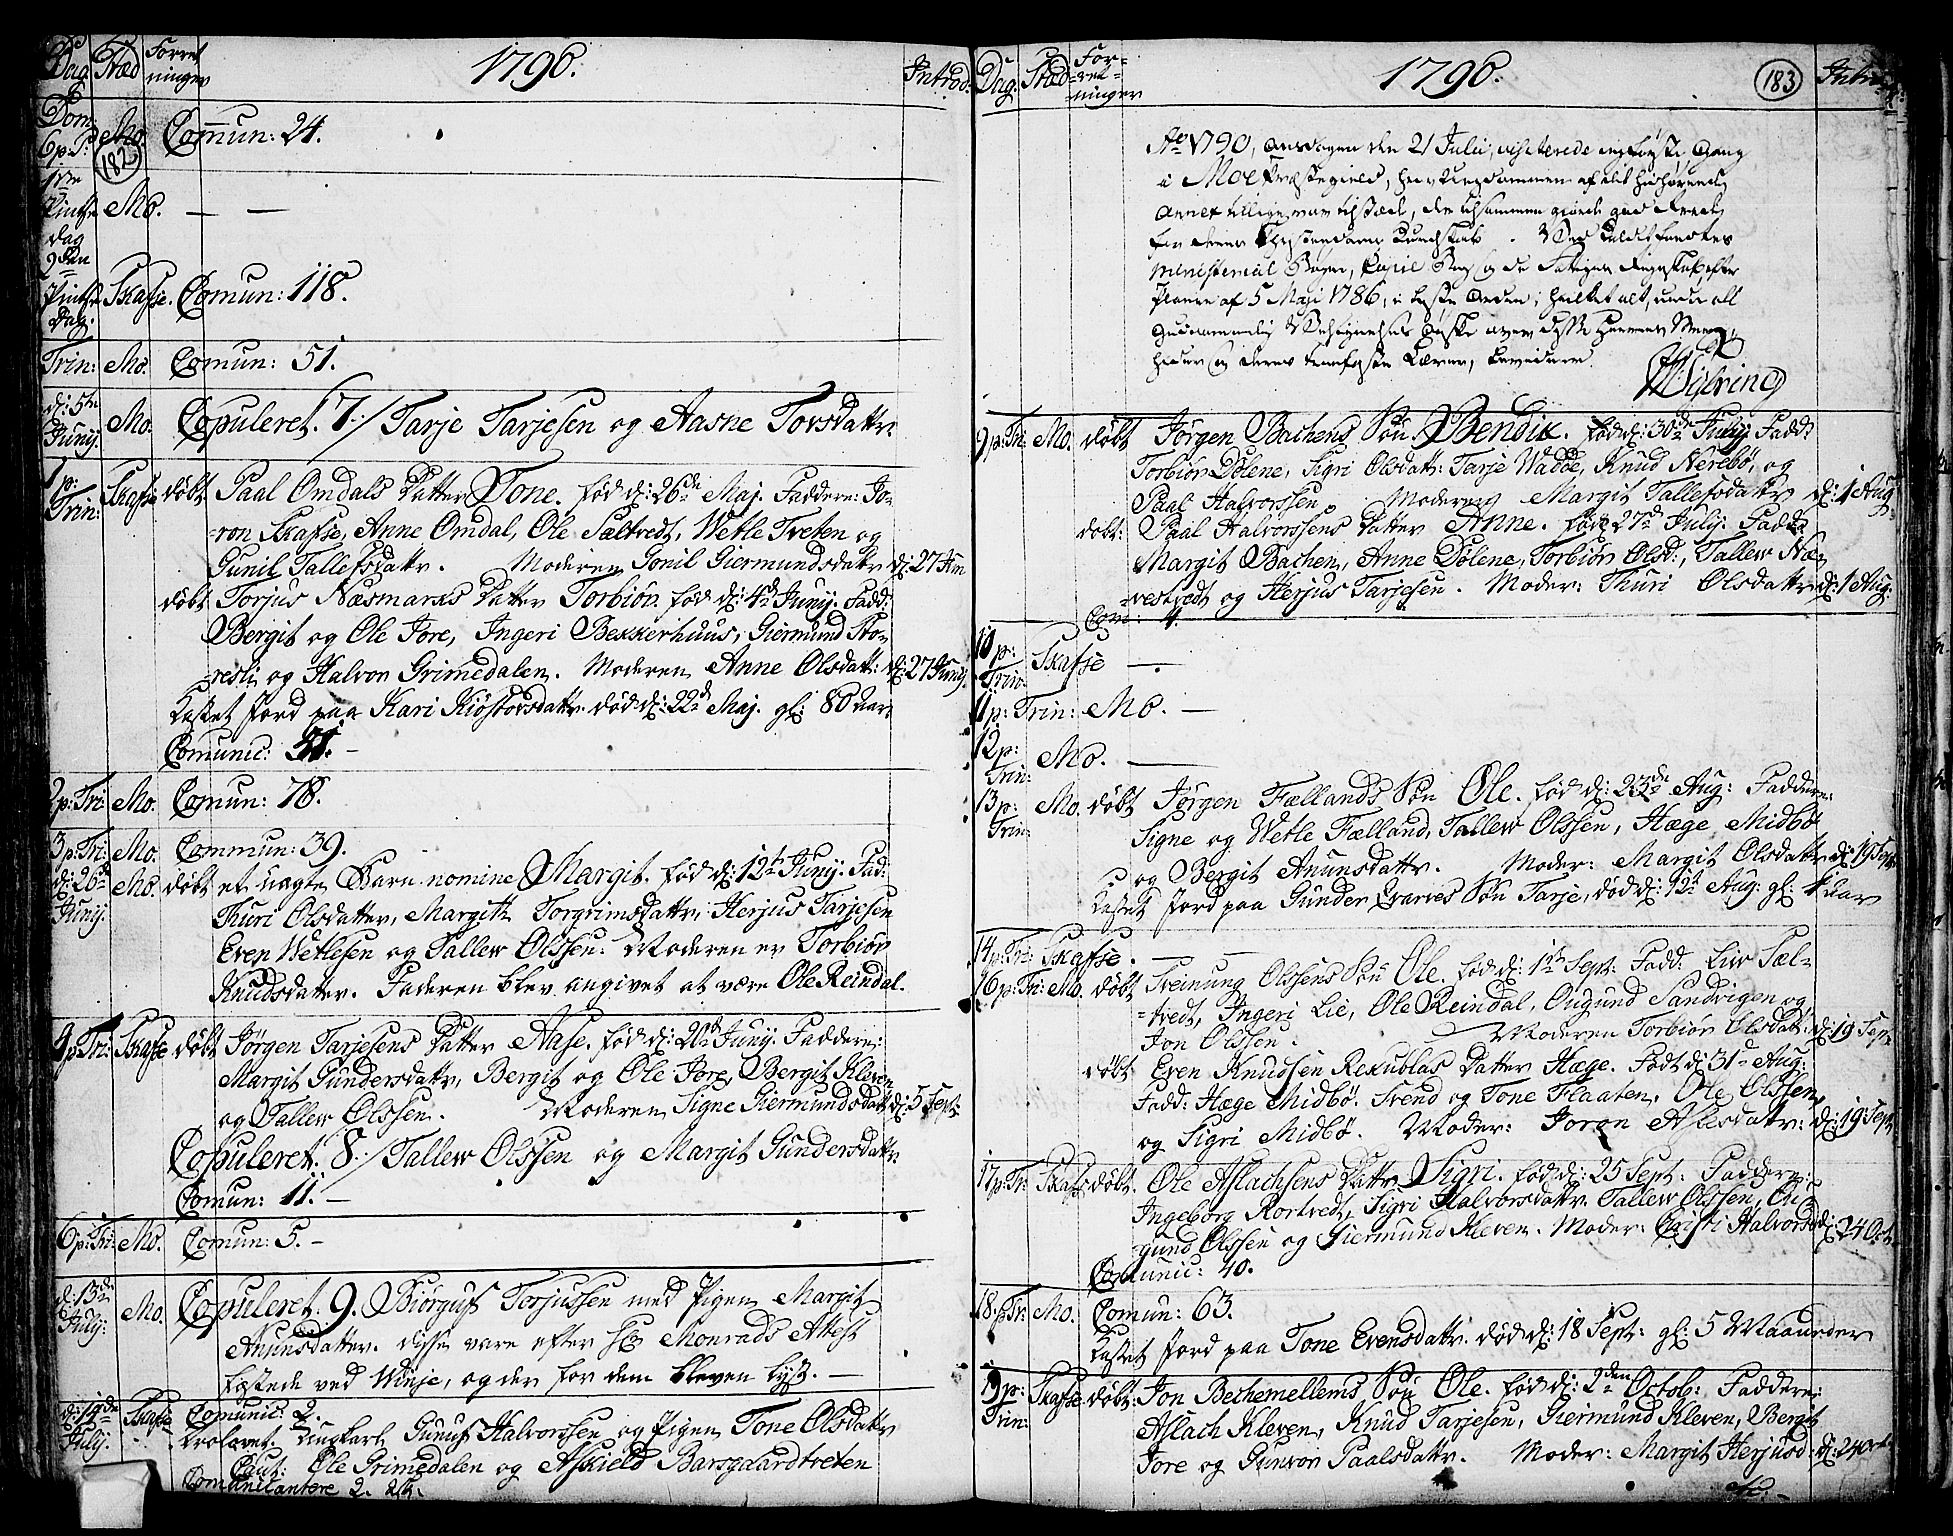 Dag Stæd Forretninger 1790. Introd:
Dom: 6 p: P: Mo. Commun: 24.
182
1ste Pintse dag Mo. — —
2den Pintse Dag. Skafse. Comun: 118.
Trin: Mo. Comun: 51.
d: 5te Juny. Mo. Copuleret. 7./ Tarje Tarjesen og Aasne Torsdattr:
1 p: Trin: Skafse døbt Paal Omdals Datter Tone. fød d: 26de Maj. Faddere: Jo-
-ron Skafse, Anne Omdal, Ole Saltvedt, Wetle Treten og
Gunil Tallefsdattr. Moderen Gonil Giermundsdattr d: 27 Jun
døbt Torjus Næsmarks Datter Torbiør. fød d: 4de Juny. Fadd:
Bergit og Ole Jore, Ingeri Bekkerhuus, Giermund Sto-
-resli og Halvor Grimedalen. Moderen Anne Olsdatt: d: 27 Juny.
Kastet Jord paa Kari Kiøstorsdattr. død d: 22de Maj. gl: 80 aar.
Comunic: 31. —
2 p: Tri: Mo. Comun: 78.
3 p: Tri: Mo. Commun: 39.
d: 26de Juny. Mo. døbt et uægte Barn nomine Margit. fød d: 12te Juny. Fad:
Thuri Olsdatter, Margith Torgrimsdattr, Herjus Tarjesen
Even Wetlesen og Tallew Olssen. Moderen er Torbiør
Knudsdatter. Faderen blev angivet at være Ole Reindal.
4 p: Tri: Skafse døbt Jørgen Tarjesens Datter Aase. fød d: 20de Juny. Faddere:
Margit Gundersdattr, Bergit og Ole Jore, Bergit Kleven
og Tallew Olssen. Moderen Signe Giermundsdattr d: 5 Sept:
Copuleret. 8./ Tallew Olssen og Margit Gundersdattr.
Comun: 11. —
6 p: Tri: Mo. Comun: 5. —
d: 13de July: Mo. Copuleret. 9. Biørguf Torjussen med Pigen Margit
Anunsdatter. disse vare efter Hr Monrads Attest
fæstede ved Winje, og der for dem bleven lyst. —
d: 14de July. Skafse Comunic: 2.
Trolovet. Ungkarl Gunuf Halvorssen og Pigen Tone Olsdattr
Caut: Ole Grimedalen og Askield Barsgaardtveten
Comunicantere 2.
Dag: Stæd Forretninger 1790. 183 Intro
Ao 1790, Onsdagen den 21 Julii, visiterede eengang
i Moe Præstegield, hvor Ungdommen af det hidhørende
Annex tillige var tilstæde, der tilsammen giorde god Rede
for deres Christendoms Kundskab. Ved Kaldet forefantes
Ministerial Bogen, Copie Bog og de Fattiges Regnskab, efter
Planen af 5 Maji 1786, i beste Orden; hvilket alt, under all
9 p: Tri: Mo. døbt Jørgen Bachens Søn Bendix. fød d: 30de Juny Fadd:
Torbiør Dølene, Sigri Olsdatr: Tarje Wadde, Knud Nerebø, og
Paal Halvorssen. Moderen Margit Tallefsdattr d: 1 Aug
døbt: Paal Halvorssens Datter Anne. fød 27de July. Fadd:
Margit Bachen, Anne Dølene, Torbiør Olsd:, Tallew Næ-
-restvedt og Herjus Tarjesen. Moder: Thuri Olsdattr d: 1 Aug:
Com: 4.
10 p: Trin: Skafse —
11 p: Trin: Mo. —
12 p: Trin: Mo. —
13 p: Trin: Mo. døbt Jørgen Fællands Søn Ole. fød d: 23de Aug: Faddere:
Signe og Wetle Fælland, Tallew Olssen, Hæge Midbø
og Bergit Anunsdattr. Moder: Margit Olsdattr d: 19 Sept
Kastet Jord paa Gunder Evarves Søn Tarje, død d: 12te Aug: gl: 4 aar
14 p: Tri: Skafse. — —
16 p: Tri: Mo. døbt Steinung Olssens Søn Ole. fød d: 1te Sept: Fadd. Liw Sæl-
-tvedt, Ingeri Lie, Ole Reindal, Ougund Sandvigen og
Jon Olssen. Moderen Torbiør Olsdatt: d: 19 Sept
døbt Even Knudsen Rekublas Datter Hæge. Født d: 31te Aug:
Fadd: Hæge Midbø. Svend og Tone Flaaten, Ole Olssen,
og Sigri Midbø. Moder: Joron Aslesdattr: d: 19 Sept
17 p: Tr: Skafs: døbt. Ole Aslachsens Dattr. Sigri. fød d: 25 Sept: Faddere:
Ingeborg Rortvedt, Sigri Halvorsdattr. Tallew Olssen, Ou-
gund Olssen og Giermund Kleven. Moder: Christi Halvorsd d: 24 Oct
Comunic: 40.
18 p: Tr: Mo. Comun: 63.
Kastet Jord paa Tone Evensdattr. død d: 18 Sept: gl: 5 Maaneder
19 p: Trin: Skafse døbt Jon Bethemellems Søn Ole. fød d: 2den Octob: Faddere:
Aslach Kleven, Knud Tarjesen, Giermund Kleven, Bergit
Jore og Gunvor Paalsdattr. Moder: Margit Herjusd d: 24 Oct